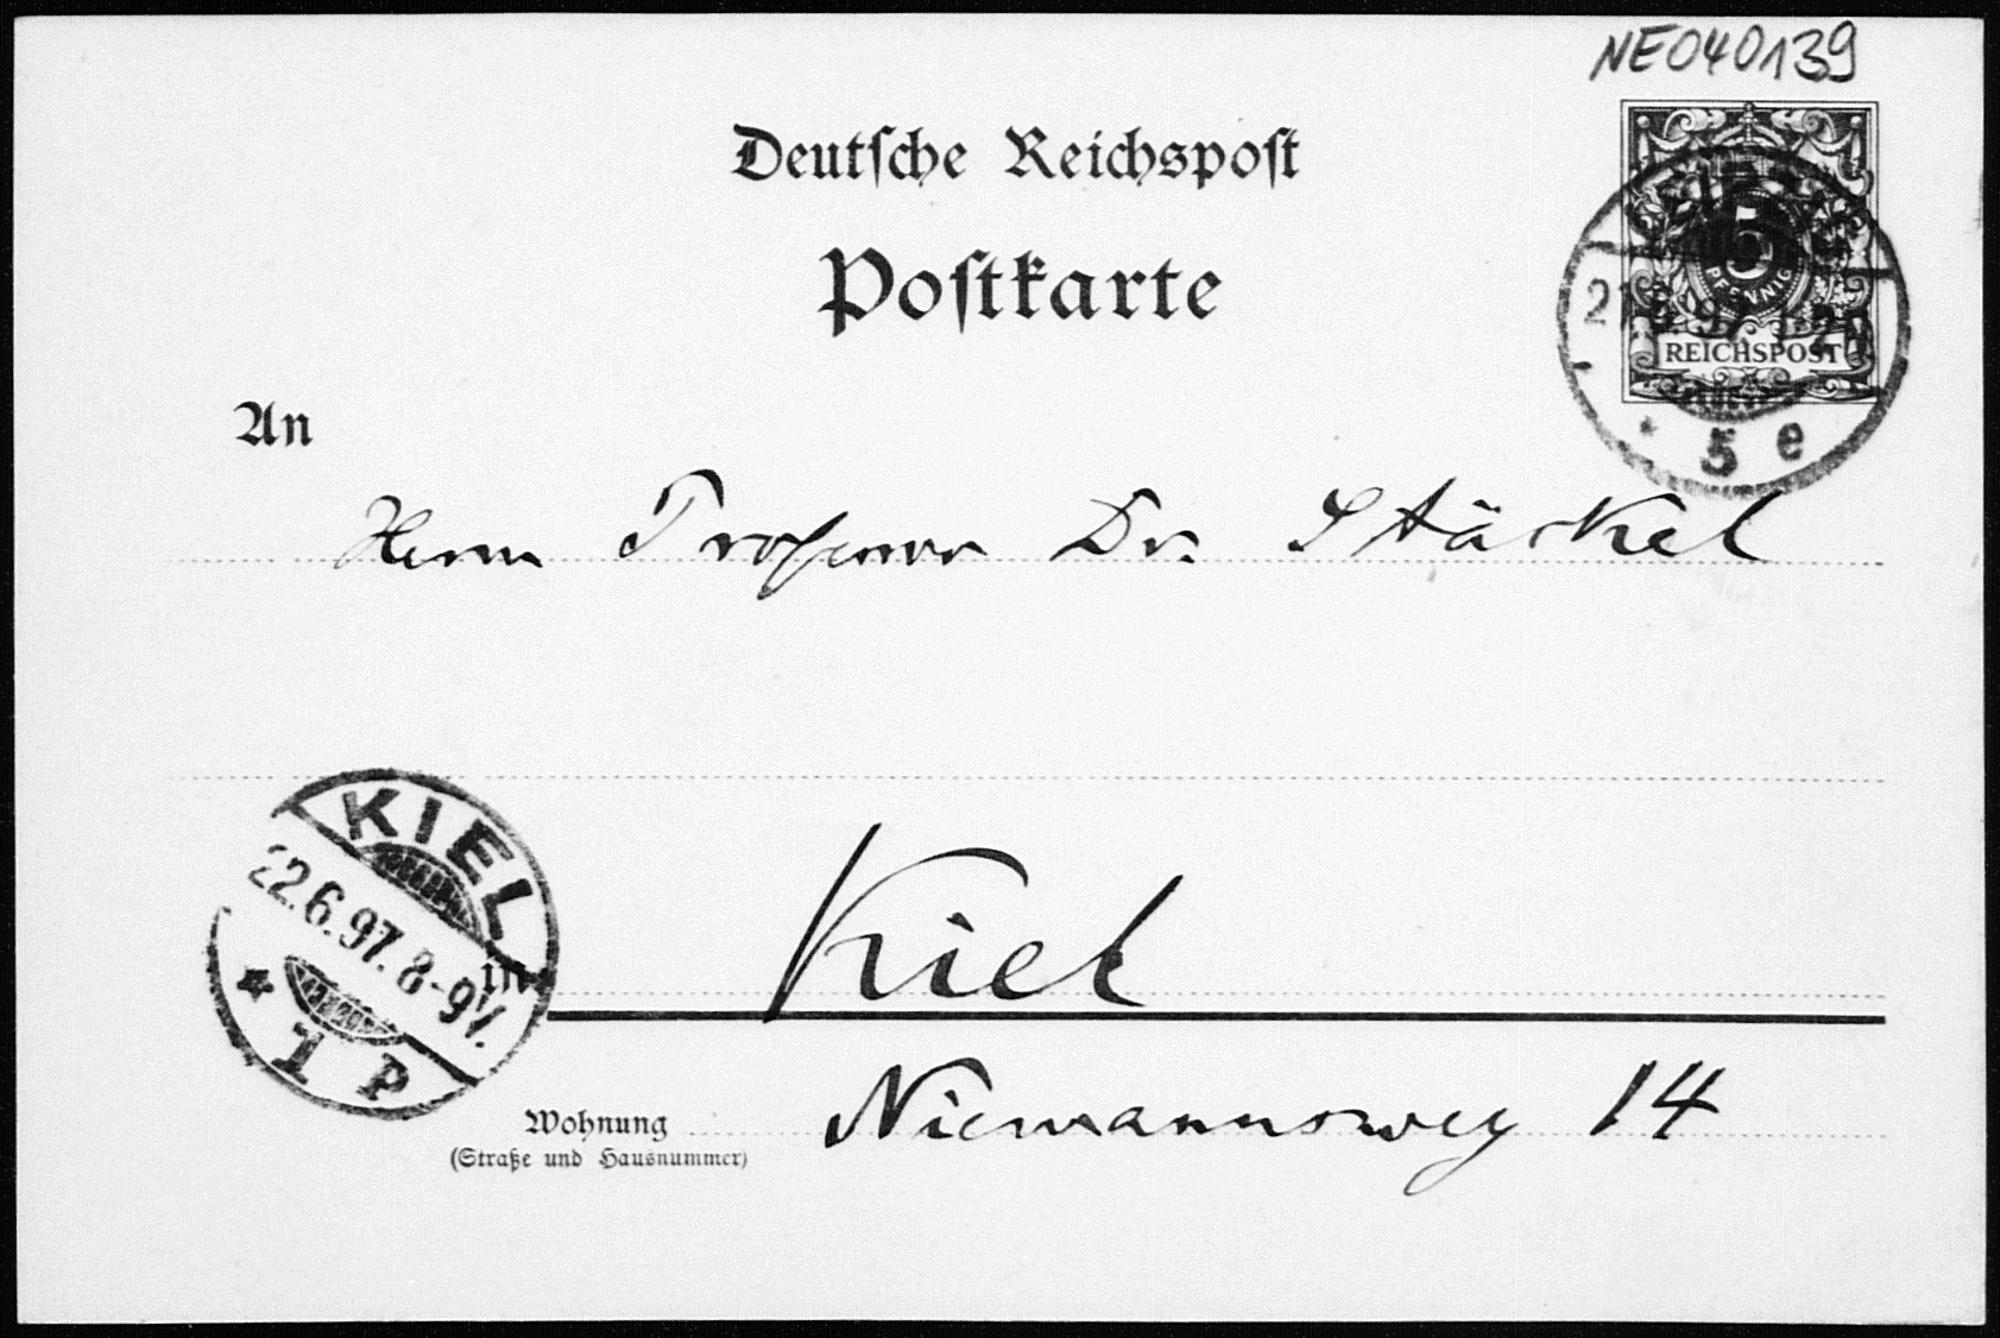 NE040139
Deutsche Reichspost
Postkarte
5
PFENNIG
REICHSPOST
LEIPZIG
21.6.97.
* 5 e
An
Herrn Professor Dr. Stäckel
KIEL
22.6.97. 8-9V.
* 1 P
in
Kiel
Wohnung
(Straße und Hausnummer)
Niemannsweg 14